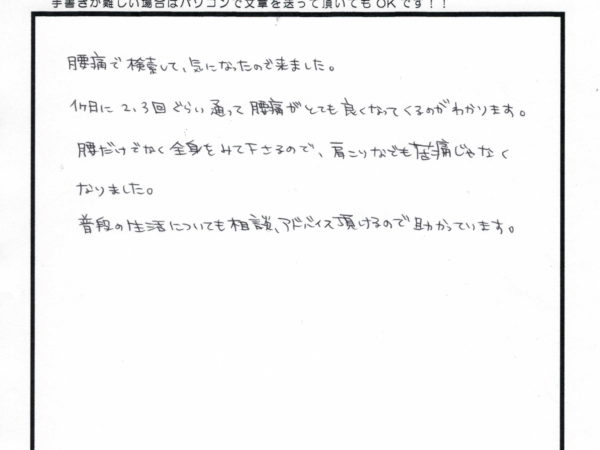 手書きが難しい場合はパソコンで文章を送って頂いてもOKです!!
腰痛で検索して、気になったので来ました。
1ヶ月に2,3回ぐらい通って腰痛がとても良くなってくるのがわかります。
腰だけでなく全身をみて下さるので、肩こりなども苦痛じゃなく
なりました。
普段の生活についても相談、アドバイス頂けるので助かっています。